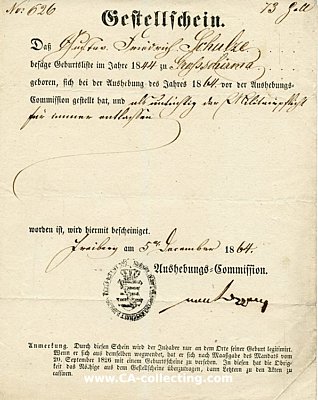 No: 626
Gestellschein.
Daß Gustav Friedrich Schulze
besage Geburtsliste im Jahre 1844 zu Großschirma
geboren, sich bei der Aushebung des Jahres 1864 vor der Aushebungs-
Commission gestellt hat, und als untüchtig der Militairpflicht
für immer entlassen
worden ist, wird hiermit bescheiniget.
Freiberg am 5ten December 1864.
Aushebungs-Commission.
Anmerkung. Durch diesen Schein wird der Inhaber nur an dem Orte seiner Geburt legitimirt.
Wenn er sich aus demselben wegwendet, hat er sich nach Maaßgabe des Mandats vom
20. September 1826 mit einem Gestellscheine zu versehen. In diesem hat die Obrig-
keit das Nöthige aus dem Gestellscheine überzutragen, dann Letztern zu den Akten zu
cassiren.
www.CA-collecting.com